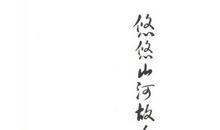 悠悠山河故